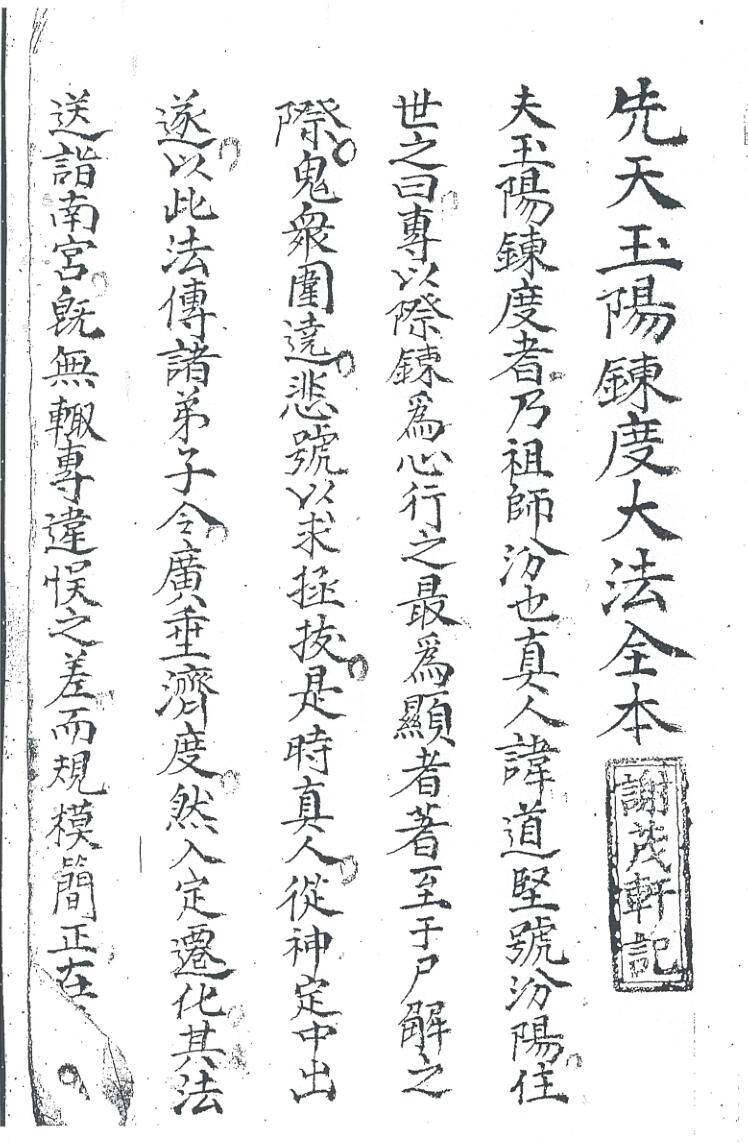 先天玉陽鍊度大法全本
謝茂軒記
夫玉陽鍊度者乃祖師汾也真人諱道堅號汾陽住
世之曰專以際鍊為心行之最為顯者著至于尸解之
際鬼衆圍遶悲號以求拯拔是時真人從神定中出
遂以此法傳諸弟子令廣垂濟度然入定遷化其法
送詣南宮既無輙專違悮之差而規模簡正在